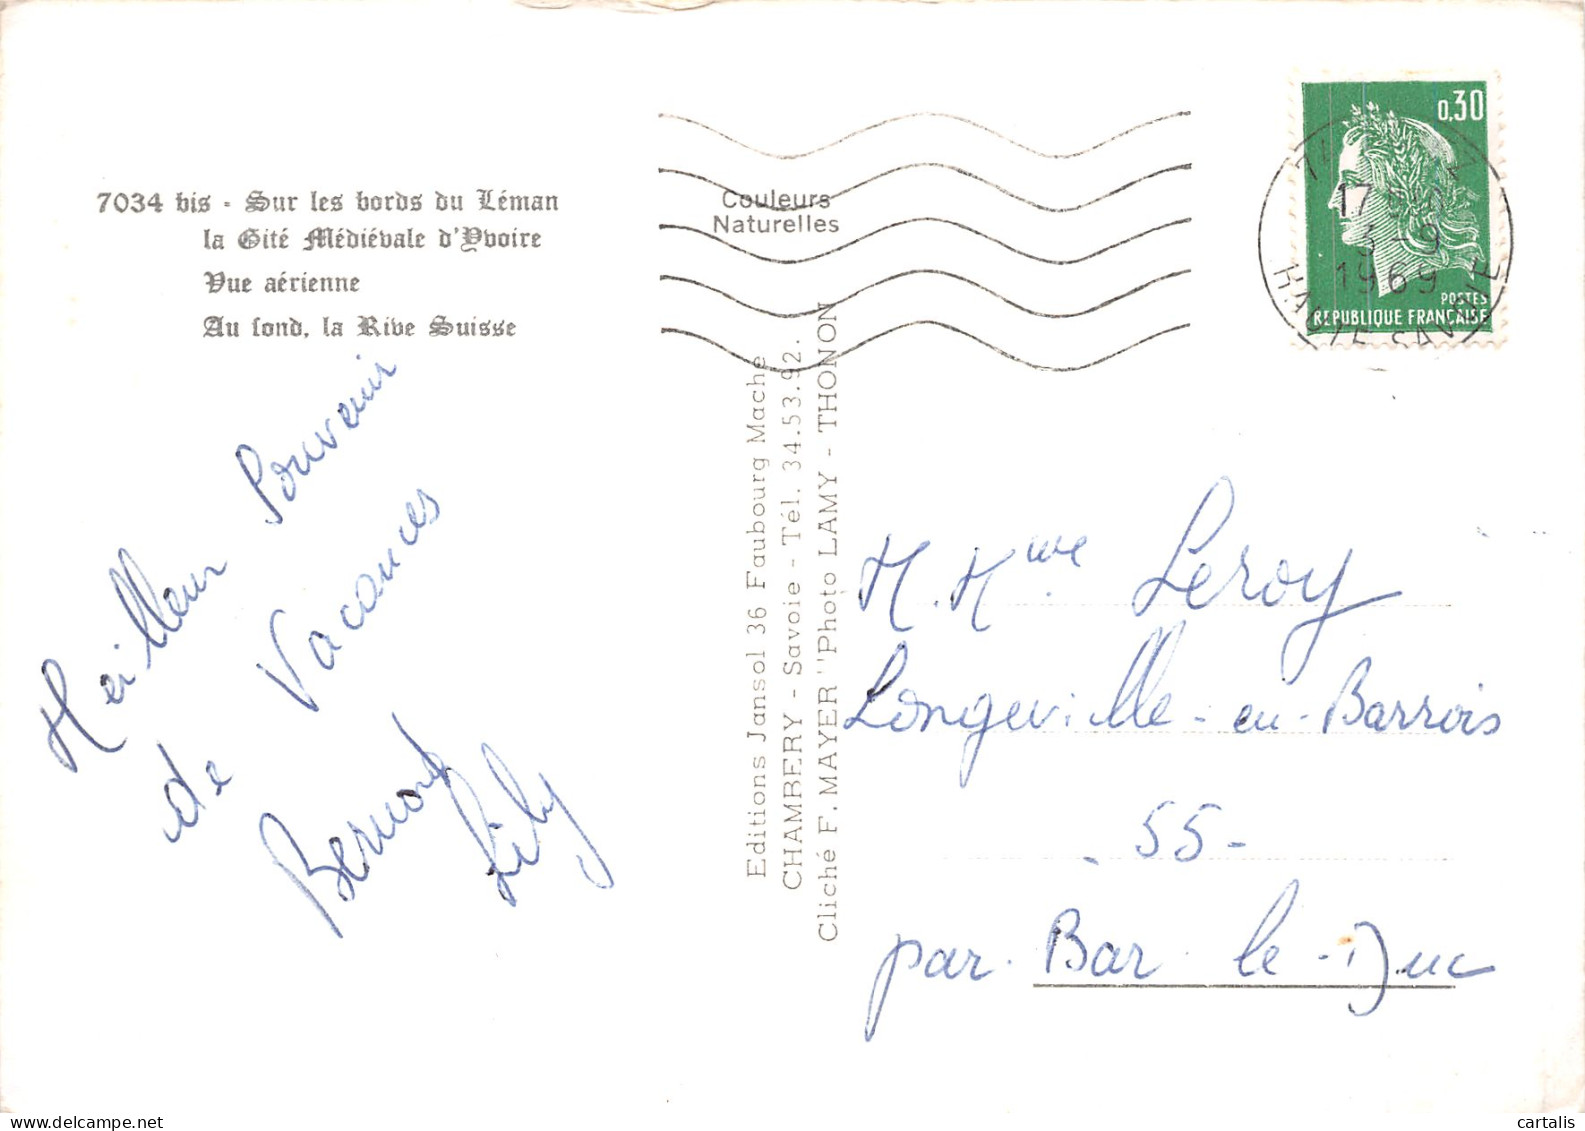 7034 bis - Sur les bords du Léman
la Cité Médiévale d'Yvoire
Vue aérienne
Au fond, la Rive Suisse
Couleurs
Naturelles
0,30
POSTES
REPUBLIQUE FRANÇAISE
17
3-9
1969
HAUTE-SAVOIE
Meilleur Souvenir
de Vacances
Bernard
Lily
Editions Jansol 36 Faubourg Mache
CHAMBERY - Savoie - Tél. 34.53.92.
Cliché F. MAYER "Photo LAMY - THONON
M. Mme. Leroy
Longeville-en-Barrois
- 55 -
par Bar-le-Duc
cartalis